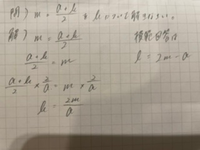 問) m = a+b/2 をbについて解きなさい。
解) m = a+b/2
模範回答は
a+b/2 = m
l = 2m - a
a+b/2 × 2/a = m × 2/a
b = 2m/a